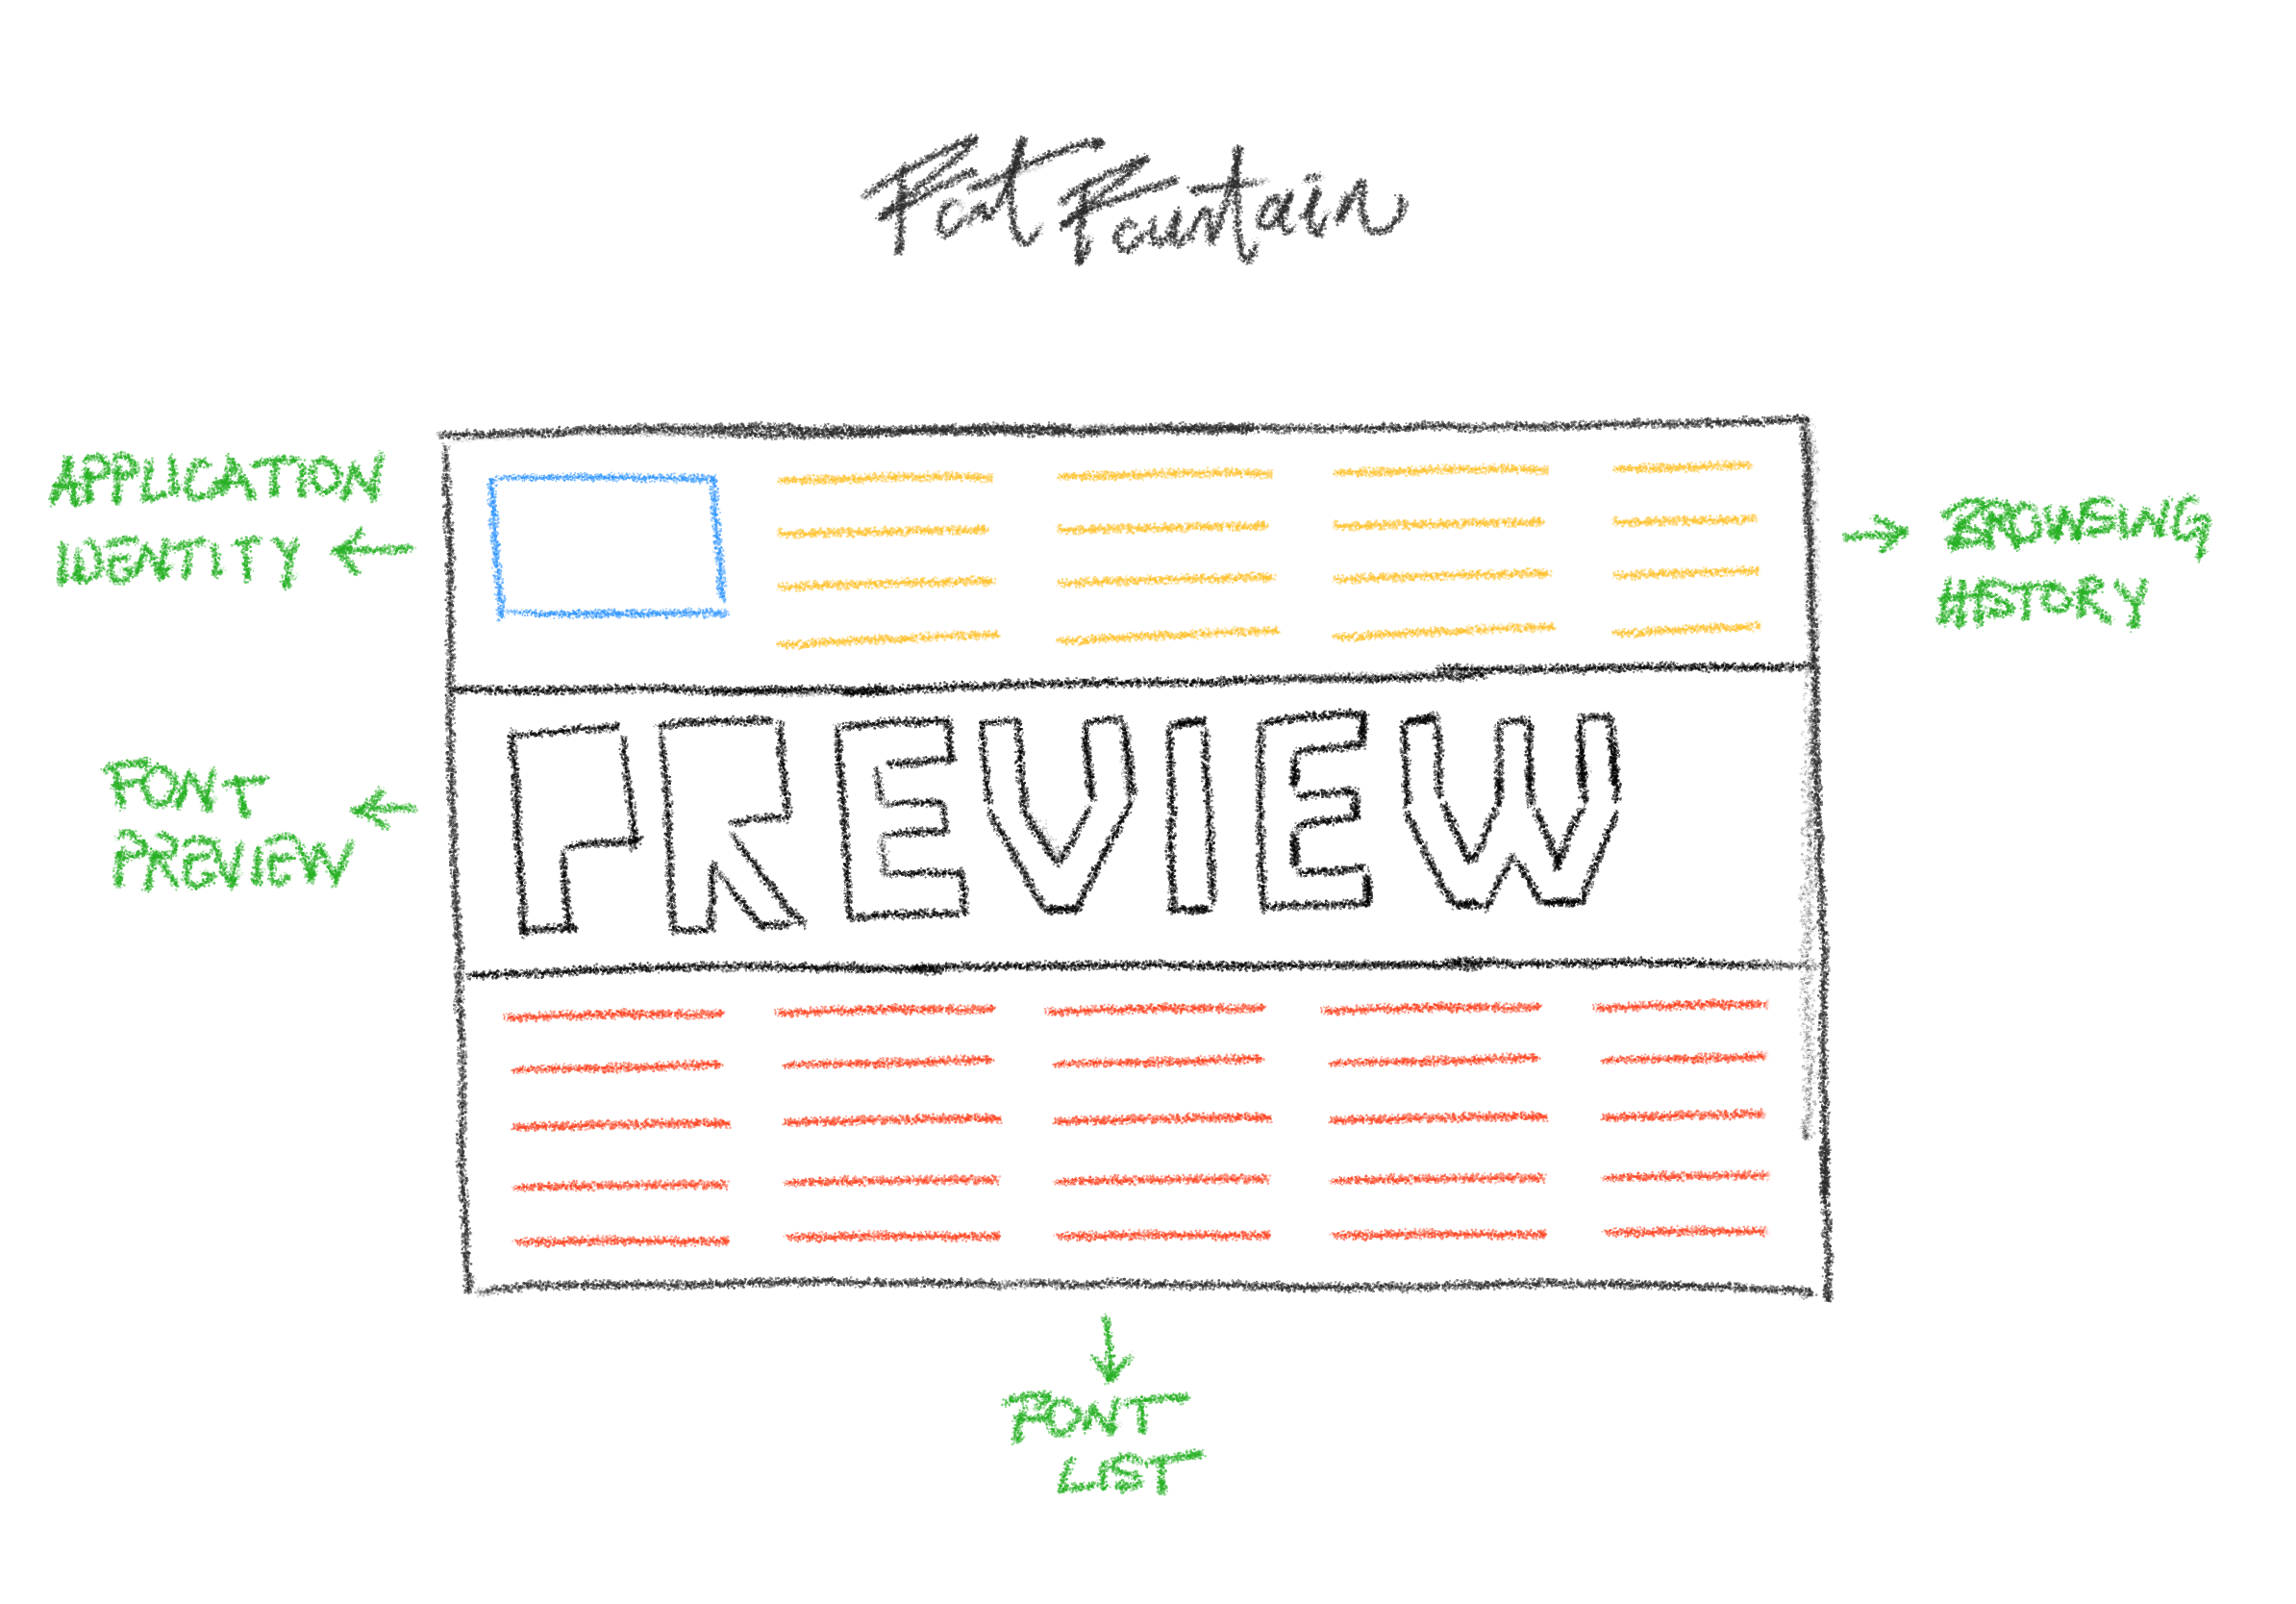 Font Fountain
APPLICATION
IDENTITY
BROWSING
HISTORY
FONT
PREVIEW
PREVIEW
FONT
LIST